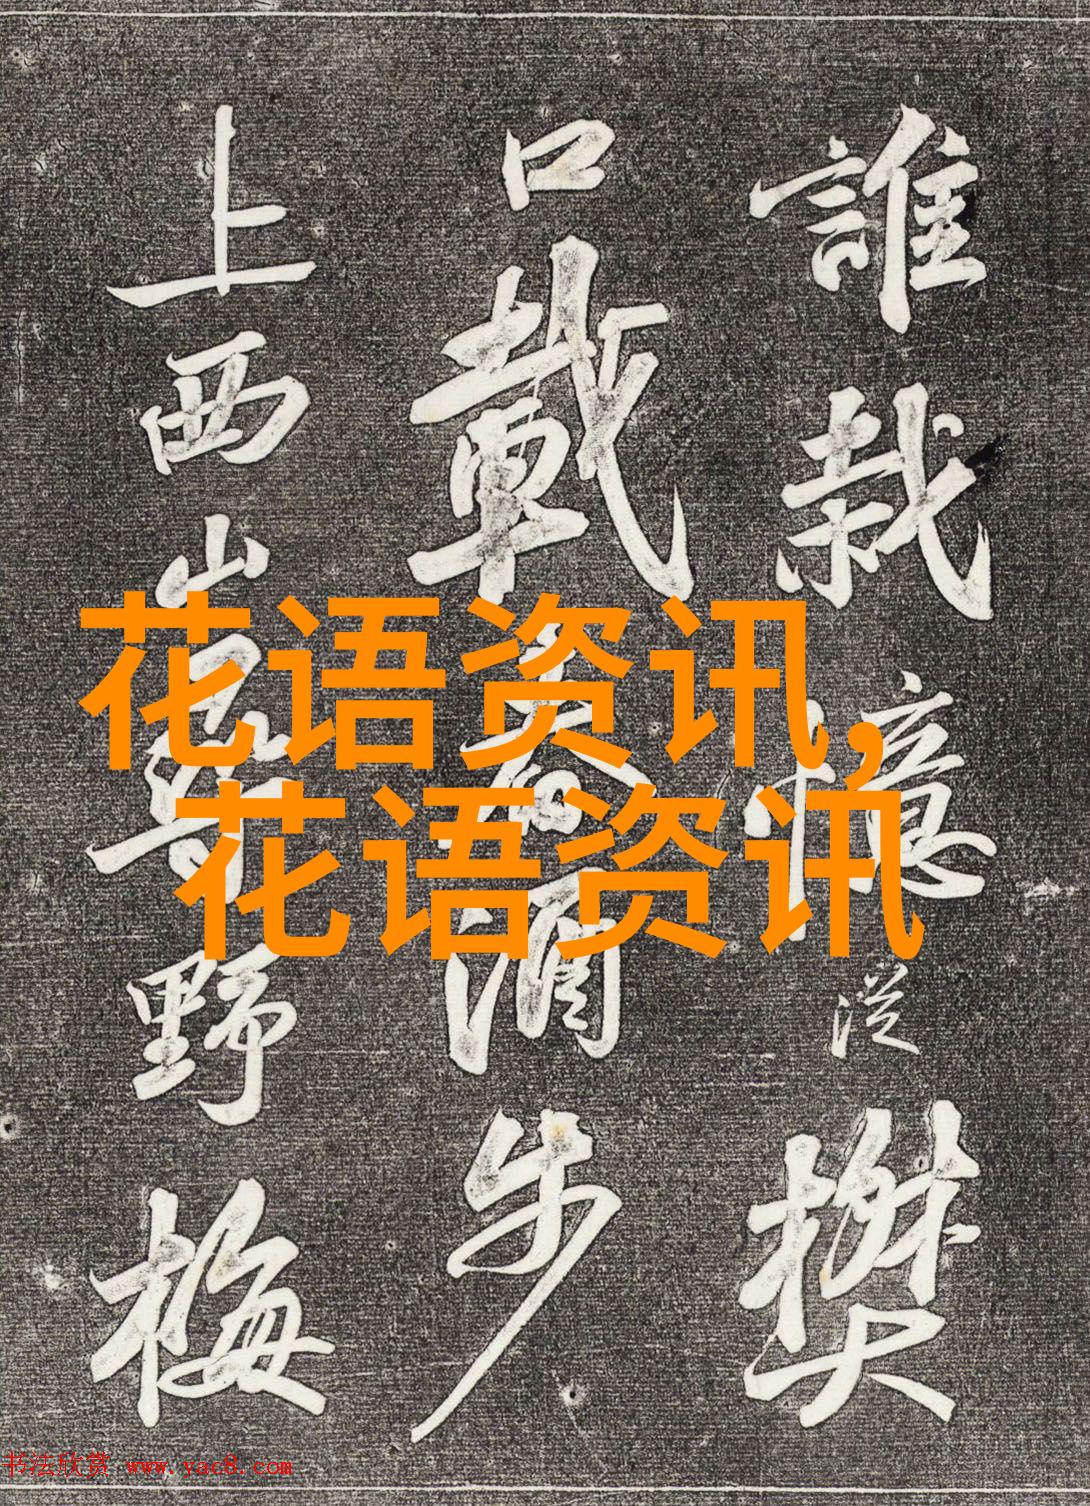 誰栽憶從樊
口載春酒步
上西山尋野梅
花语资讯,
花语资讯
书法欣赏 www.yac8.com